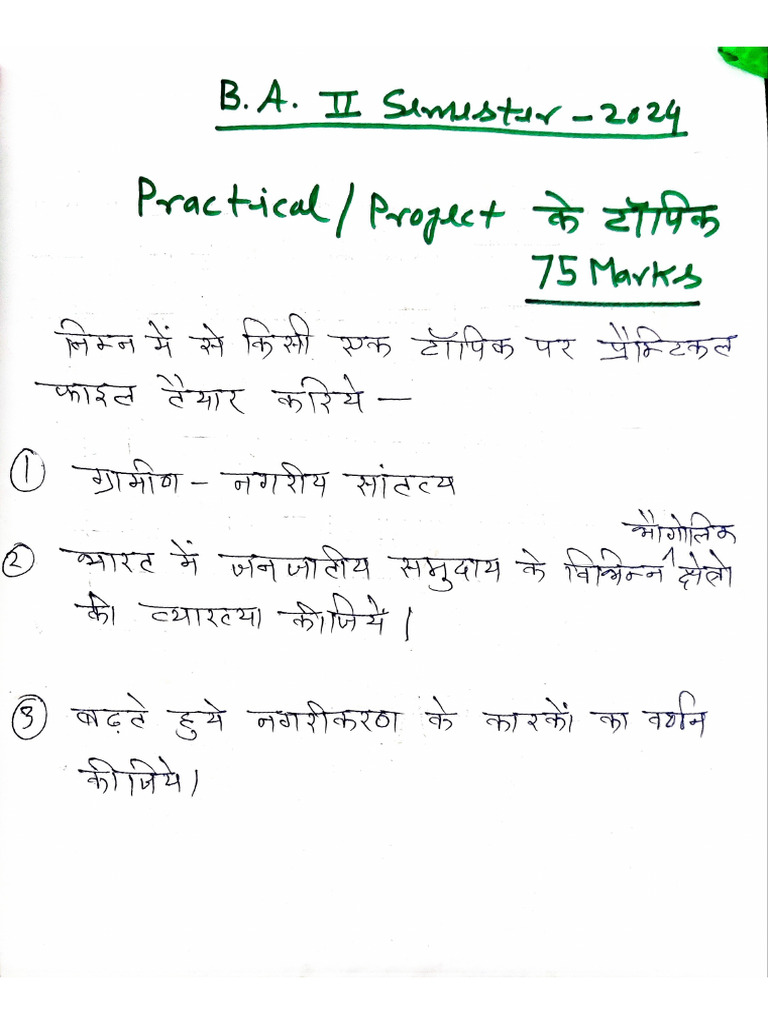 B.A. II Semester - 2024
Practical / Project के टॉपिक
75 Marks
निम्न में से किसी एक टॉपिक पर प्रैक्टिकल
फाइल तैयार करिये —
① ग्रामीण - नगरीय सांतत्य
② भारत में जनजातीय समुदाय के विभिन्न ^ भौगोलिक क्षेत्रो
की व्याख्या कीजिये।
③ बढ़ते हुये नगरीकरण के कारकों का वर्णन
कीजिये।